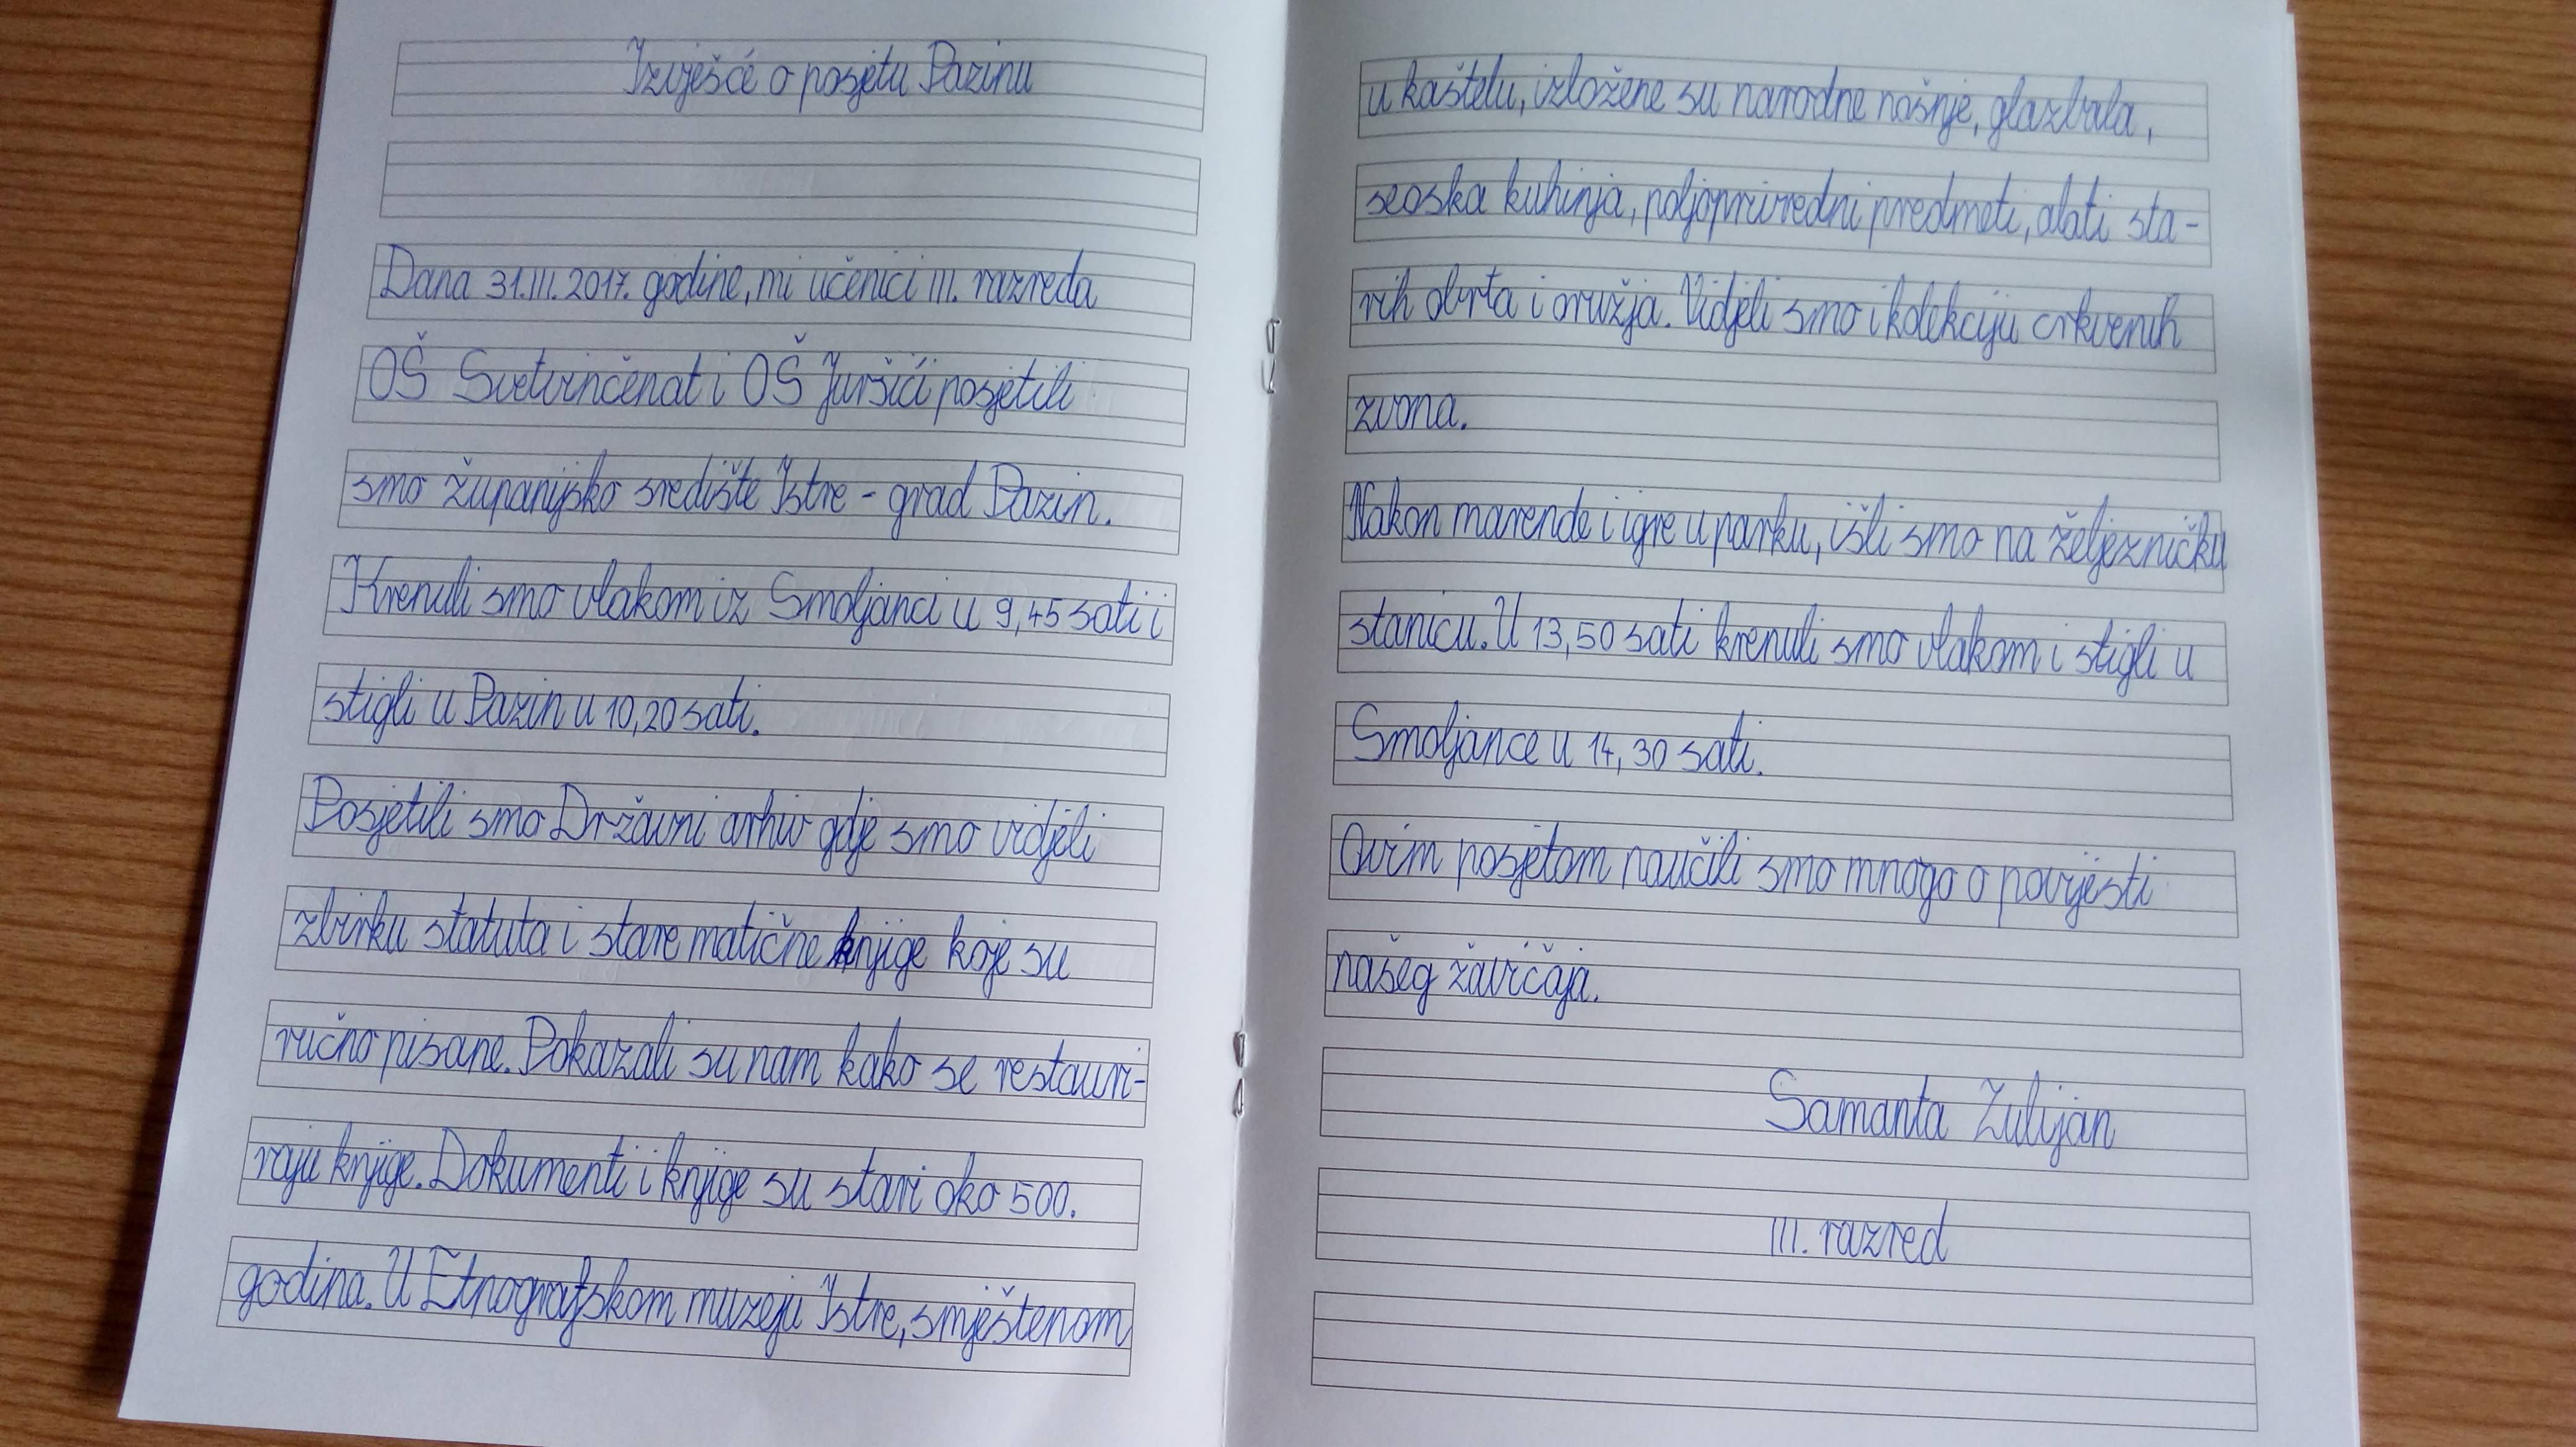 Izvješće o posjetu Pazinu
Dana 31.III. 2017. godine, mi učenici III. razreda
OŠ Svetvinčenat i OŠ Juršići posjetili
smo županijsko središte Istre - grad Pazin.
Krenuli smo vlakom iz Smoljanci u 9,45 sati i
stigli u Pazin u 10,20 sati.
Posjetili smo Državni arhiv gdje smo vidjeli
zbirku statuta i stare matične knjige koje su
ručno pisane. Pokazali su nam kako se restauri-
raju knjige. Dokumenti i knjige su stari oko 500.
godina. U Etnografskom muzeju Istre, smještenom
u kaštelu, izložene su narodne nošnje, glazbala,
seoska kuhinja, poljoprivredni predmeti, alati sta-
rih obrta i oružja. Vidjeli smo i kolekciju crkvenih
zvona.
Nakon marende i igre u parku, išli smo na željezničku
stanicu. U 13,50 sati krenuli smo vlakom i stigli u
Smoljance u 14,30 sati.
Ovim posjetom naučili smo mnogo o povijesti
našeg žavičaja.
Samanta Zulijan
III. razred